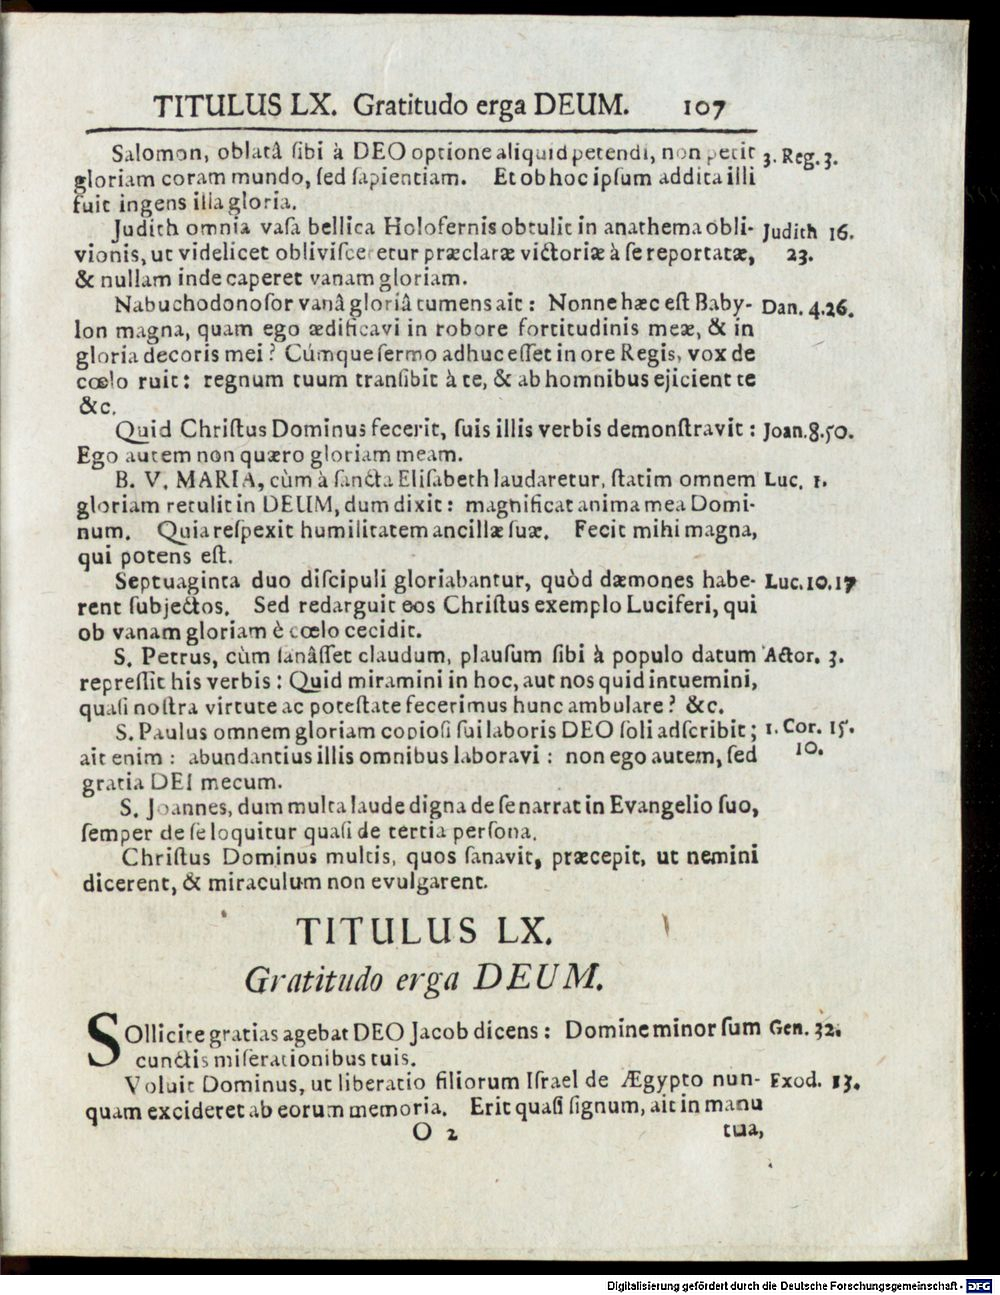 TITULUS LX. Gratitudo erga DEUM. 107
Salomon, oblatâ ſibi à DEO optione aliquid petendi, non petit 3. Reg. 3.
gloriam coram mundo, ſed ſapientiam. Et ob hoc ipſum addita illi
fuit ingens illa gloria.
Judith omnia vaſa bellica Holofernis obtulit in anathema obli- Judith 16.
vionis, ut videlicet obliviſceretur præclaræ victoriæ à ſe reportatæ, 23.
& nullam inde caperet vanam gloriam.
Nabuchodonoſor vanâ gloriâ tumens ait: Nonne hæc eſt Baby- Dan. 4.26.
lon magna, quam ego ædificavi in robore fortitudinis meæ, & in
gloria decoris mei? Cúmque ſermo adhuc eſſet in ore Regis, vox de
cœlo ruit: regnum tuum tranſibit à te, & ab homnibus ejicient te
&c.
Quid Chriſtus Dominus fecerit, ſuis illis verbis demonſtravit: Joan. 8. 50.
Ego autem non quæro gloriam meam.
B. V. MARIA, cùm à ſancta Eliſabeth laudaretur, ſtatim omnem Luc. 1.
gloriam retulit in DEUM, dum dixit: magnificat anima mea Domi-
num. Quia reſpexit humilitatem ancillæ ſuæ. Fecit mihi magna,
qui potens eſt.
Septuaginta duo diſcipuli gloriabantur, quòd dæmones habe- Luc. 10. 17
rent ſubjectos. Sed redarguit eos Chriſtus exemplo Luciferi, qui
ob vanam gloriam è cœlo cecidit.
S. Petrus, cùm ſanâſſet claudum, plauſum ſibi à populo datum Actor. 3.
repreſſit his verbis: Quid miramini in hoc, aut nos quid intuemini,
quaſi noſtra virtute ac poteſtate fecerimus hunc ambulare? &c.
S. Paulus omnem gloriam copioſi ſui laboris DEO ſoli adſcribit; 1. Cor. 15.
ait enim: abundantius illis omnibus laboravi: non ego autem, ſed 10.
gratia DEI mecum.
S. Joannes, dum multa laude digna de ſe narrat in Evangelio ſuo,
ſemper de ſe loquitur quaſi de tertia perſona.
Chriſtus Dominus multis, quos ſanavit, præcepit, ut nemini
dicerent, & miraculum non evulgarent.
TITULUS LX.
Gratitudo erga DEUM.
SOllicite gratias agebat DEO Jacob dicens: Domine minor ſum Gen. 32.
cunctis miſerationibus tuis.
Voluit Dominus, ut liberatio filiorum Iſrael de Ægypto nun- Exod. 13.
quam excideret ab eorum memoria. Erit quaſi ſignum, ait in manu
O 2 tua,
Digitalisierung gefördert durch die Deutsche Forschungsgemeinschaft - DFG